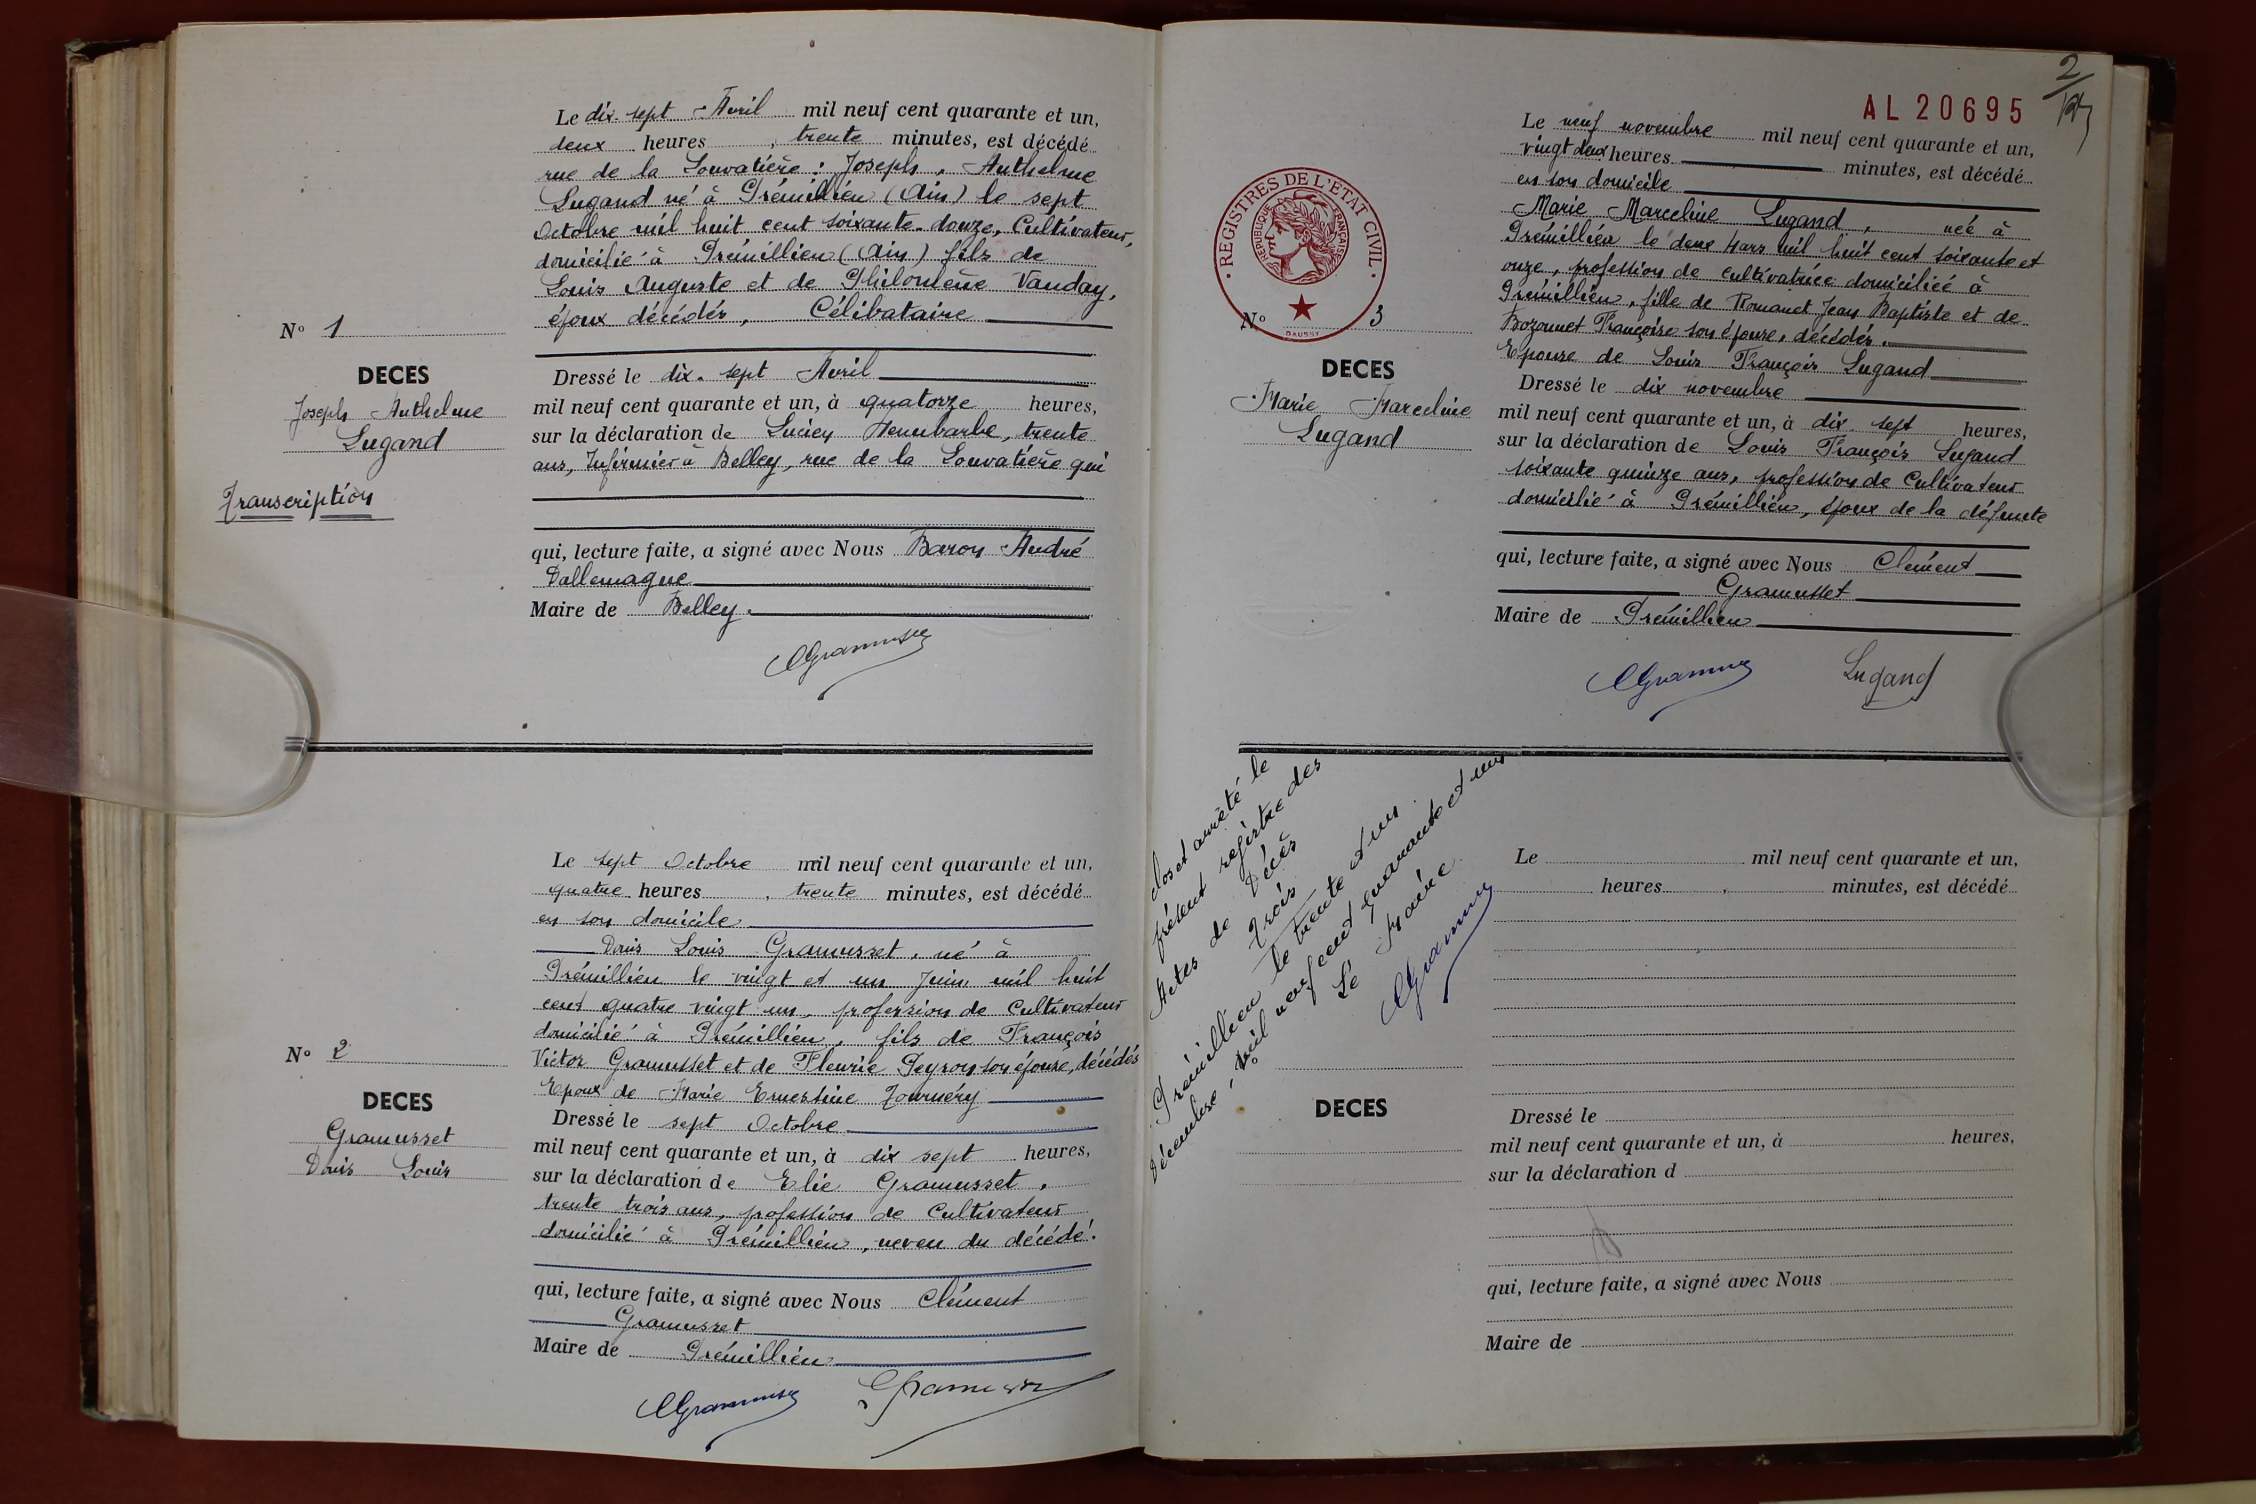 Le dix-sept Avril mil neuf cent quarante et un,
deux heures, trente minutes, est décédé
rue de la Louvatière : Joseph, Anthelme
Lugand né à Prémillieu (Ain) le sept
Octobre mil huit cent soixante-douze, Cultivateur,
domicilié à Prémillieu (Ain) fils de
Louis Auguste et de Philomène Vanday,
époux décédés, Célibataire
N° 1
DECES
Joseph Anthelme
Lugand
Transcription
Dressé le dix-sept Avril
mil neuf cent quarante et un, à quatorze heures,
sur la déclaration de Lucien, trente
ans, Infirmier à Belley, rue de la Louvatière qui
qui, lecture faite, a signé avec Nous Baron André
Dallemagne
Maire de Belley.
CGramusset
Le sept Octobre mil neuf cent quarante et un,
quatre heures, trente minutes, est décédé
en son domicile
Louis Gramusset, né à
Prémillieu le vingt et un Juin mil huit
cent quatre vingt un, profession de Cultivateur
domicilié à Prémillieu, fils de François
Victor Gramusset et de Fleurie Peyron son épouse, décédés
Epoux de Marie Ernestine Tournéry
N° 2
DECES
Gramusset
Louis
Dressé le sept Octobre
mil neuf cent quarante et un, à dix sept heures,
sur la déclaration de Elie Gramusset,
trente trois ans, profession de Cultivateur
domicilié à Prémillieu, neveu du décédé.
qui, lecture faite, a signé avec Nous Clément
Gramusset
Maire de Prémillieu
CGramusset
Gramusset
2
AL 20695
REGISTRES DE L'ETAT CIVIL
REPUBLIQUE FRANÇAISE
DAUSSY
Le neuf novembre mil neuf cent quarante et un,
vingt deux heures minutes, est décédé
en son domicile
Marie Marceline Lugand, née à
Prémillieu le deux Mars mil huit cent soixante et
onze, profession de cultivatrice domiciliée à
Prémillieu, fille de Romanet Jean Baptiste et de
Bozonnet Françoise son épouse, décédés.
Epouse de Louis François Lugand
N° 3
DECES
Marie Marceline
Lugand
Dressé le dix novembre
mil neuf cent quarante et un, à dix-sept heures,
sur la déclaration de Louis François Lugand
soixante quinze ans, profession de Cultivateur
domicilié à Prémillieu, époux de la défunte
qui, lecture faite, a signé avec Nous Clément
Gramusset
Maire de Prémillieu
CGramusset
Lugand
Clos et arrêté le
présent registre des
Actes de Décès
Trois
Prémillieu le trente et un
Décembre, mil neuf cent quarante et un
Le Maire
CGramusset
Le mil neuf cent quarante et un,
heures, minutes, est décédé
N°
DECES
Dressé le
mil neuf cent quarante et un, à heures,
sur la déclaration d
qui, lecture faite, a signé avec Nous
Maire de